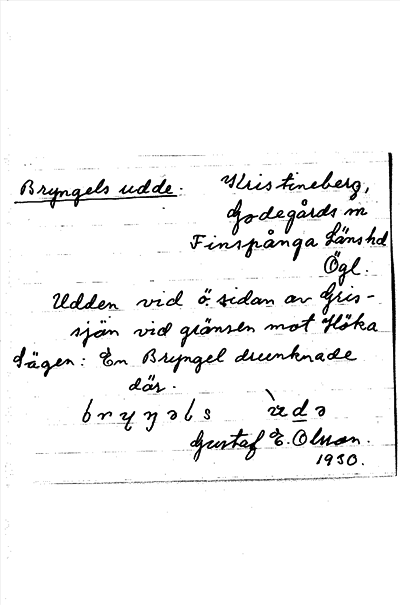 Bryngels udde. Kristineberg,
Godegårds sn
Finspånga Länshd
Ögl.
Udden vid ö. sidan av Gris-
sjön vid gränsen mot Höka
Sägen: En Bryngel drunknade
där.
bryŋəls ùdə
Gustaf E. Olsson.
1930.